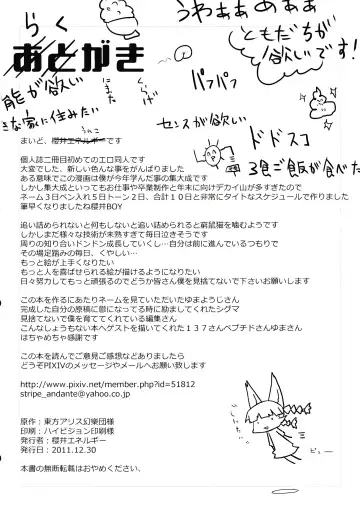 らく
うわぁぁめぁぁ
ともだちが欲しいです！
あとがき
能が欲しい
にまた
くらげ
パフパフ
きな家に住みたい
センスが欲しい
ドドスコ
3食ご飯が食べた
まいど、櫻井エネルギーです
個人誌二冊目初めてのエロ同人です
大変でした、新しい色んな事をがんばりました
ある意味でこの漫画は僕が今年学んだ事の集大成です
しかし集大成といってもお仕事や卒業制作と年末に向けデカイ山が多すぎたので
ネーム３日ペン入れ５日トーン２日、合計１０日と非常にタイトなスケジュールで作りました
筆早くなりましたね櫻井BOY
追い詰められないと何もしないと追い詰められると窮鼠猫を噛むようです
しかしまだ様々な技術が未熟すぎて毎日泣きそうです
周りの知り合いドンドン成長していくし…自分は前に進んでいるつもりで
その場足踏みの毎日、くやしい…
もっと絵が上手くなりたい
もっと人を喜ばせられる絵が描けるようになりたい
日々努力してもっと頑張るのでどうか皆さん僕を見捨てないで下さいお願いします
この本を作るにあたりネームを見ていただいたゆまようじさん
完成した自分の原稿に鬱になってる時に励ましてくれたシグマ
見捨てないで僕を育ててくれている編集さん
こんなしょうもない本へゲストを描いてくれた１３７さんペプチドさんゆまさん
はちゃめちゃ感謝です
この本を読んでご意見ご感想などありましたら
どうぞPIXIVのメッセージやメールへお願い致します
http://www.pixiv.net/member.php?id=51812
stripe_andante@yahoo.co.jp
原作：東方アリス幻樂団様
印刷：ハイビジョン印刷様
発行者：櫻井エネルギー
発行日：2011.12.30
本書の無断転載はおやめください、
しんたい
ビュー